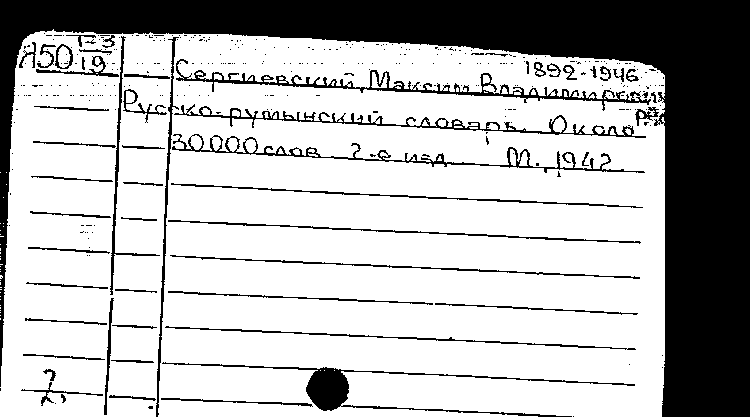 1892-1946
А50 1-3
19
Сергиевский, Максим Владимирович
Русско-румынский словарь. Около
30000 слов 2-е изд. М., 1942
2.